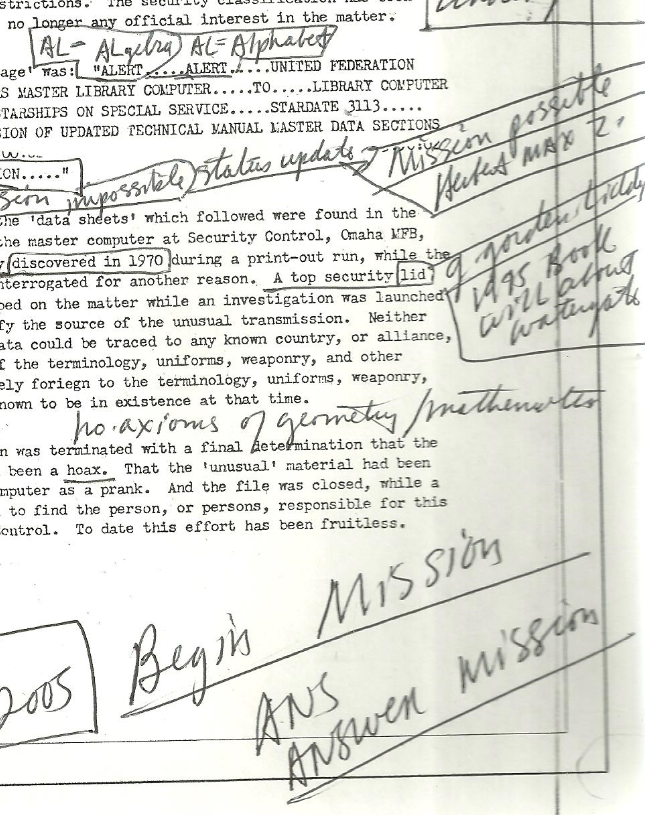 strictions. The security classification has been
no longer any official interest in the matter.
AL - ALgebra) AL = Alphabet
age' was: "ALERT.....ALERT.....UNITED FEDERATION
S MASTER LIBRARY COMPUTER.....TO.....LIBRARY COMPUTER
TARSHIPS ON SPECIAL SERVICE.....STARDATE 3113.....
SION OF UPDATED TECHNICAL MANUAL MASTER DATA SECTIONS
ION....."
impossible) status update
Mission possible
MAX 2.
he 'data sheets' which followed were found in the
the master computer at Security Control, Omaha MFB,
y discovered in 1970 during a print-out run, while the
nterrogated for another reason. A top security lid
g. gordon liddy
1995 Book
will about
watergate
ped on the matter while an investigation was launched
fy the source of the unusual transmission. Neither
ata could be traced to any known country, or alliance,
f the terminology, uniforms, weaponry, and other
ely foriegn to the terminology, uniforms, weaponry,
nown to be in existence at that time.
no. axioms of geometry/mathematics
n was terminated with a final determination that the
been a hoax. That the 'unusual' material had been
mputer as a prank. And the file was closed, while a
to find the person, or persons, responsible for this
ontrol. To date this effort has been fruitless.
2005
Begin Mission
ANS
ANSwer Mission